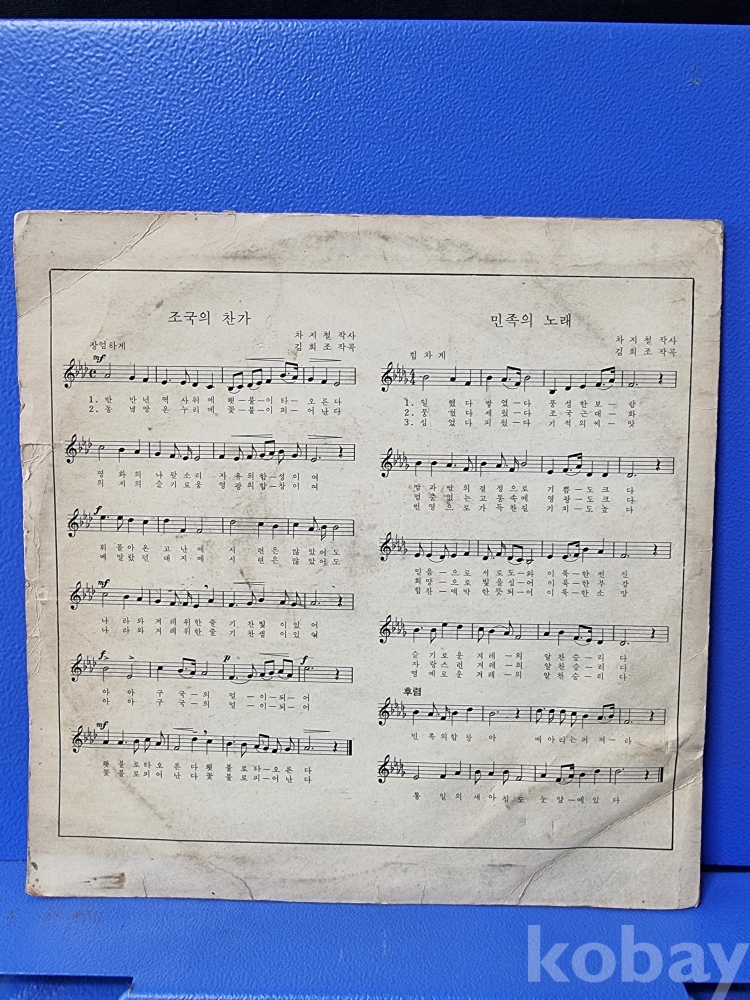 조국의 찬가
차 지 철 작사
김 희 조 작곡
장엄하게
mf
1. 반 만 년 역 사 위 에 횃─불─이 타─ 오 른 다
2. 동 녘 밝 은 누 리 에 꽃─불─이 피─ 어 난 다
평 화 의 나 팔 소 리 자 유 의 합─성 이 여
의 지 의 슬 기 로 움 영 광 의 합─창 이 여
f
휘 몰 아 온 고 난 에 시 련 은 많 았 어 도
메 말 랐 던 대 지 에 시 련 은 많 았 어 도
mf
나 라 와 겨 레 위 한 줄 기 찬 빛 이 있 어
나 라 와 겨 레 위 한 줄 기 찬 샘 이 있 어
f p f
아 아 구 국─의 얼 ─이─되─어
아 아 구 국─의 얼 ─이─되─어
mf
횃 불 로 타 오 른 다 횃 불 로 타─오 른 다
꽃 불 로 피 어 난 다 꽃 불 로 피─어 난 다
민족의 노래
차 지 철 작사
김 희 조 작곡
힘 차 게
1. 일 했 다 쌓 았─다 풍 성 한 보─람
2. 뭉 쳤 다 세 웠─다 조 국 근 대─화
3. 심 었 다 피 웠─다 기 적 의 씨─앗
땀 과 땀 의 결 정 으 로 기 쁨─도 크 다
멈 출 없 는 고 동 속 에 영 광─도 크 다
번 영 으 로 가 득 찬 길 기 치─도 높 다
믿 음─으 로 서 로 도─와 이 룩─한 전 진
희 망─으 로 빛 을 심─어 이 룩─한 부 강
힘 찬 ─맥 박 한 뜻 되─어 이 룩─한 소 망
슬 기 로 운 겨 레─의 알 찬 승─리 다
자 랑 스 런 겨 레─의 알 찬 승─리 다
명 예 로 운 겨 레─의 알 찬 승─리 다
후렴
민 족 의 합 창 아 메 아 리 는 퍼 져─라
통 일 의 새 아 침 도 눈 앞─에 있 다
kobay